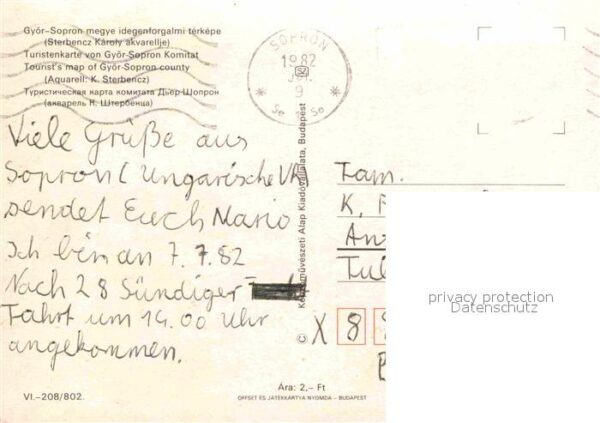 Győr–Sopron megye idegenforgalmi térképe
(Sterbencz Károly akvarellje)
Turistenkarte von Győr-Sopron Komitat
Tourist's map of Győr-Sopron county
(Aquarell: K. Sterbencz)
Туристическая карта комитата Дьёр-Шопрон
(акварель К. Штербенца)
SOPRON
1982
9
Viele Grüße aus
Sopron (Ungarische VR)
sendet Euch Mario
Ich bin an 7.7.82
Nach 28 Sündiger
Fahrt um 14.00 Uhr
angekommen.
VI.–208/802.
© Képzőművészeti Alap Kiadóvállalata, Budapest
Ára: 2,– Ft
OFFSET ÉS JÁTÉKKÁRTYA NYOMDA – BUDAPEST
Fam.
K,
X 8
privacy protection
Datenschutz